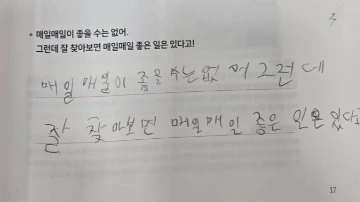 매일매일이 좋을 수는 없어.
그런데 잘 찾아보면 매일매일 좋은 일은 있다고!
매일 매일이 좋을 수는 없 어 그런 데
잘 찾아보면 매일매일 좋은 일은 있다고
17